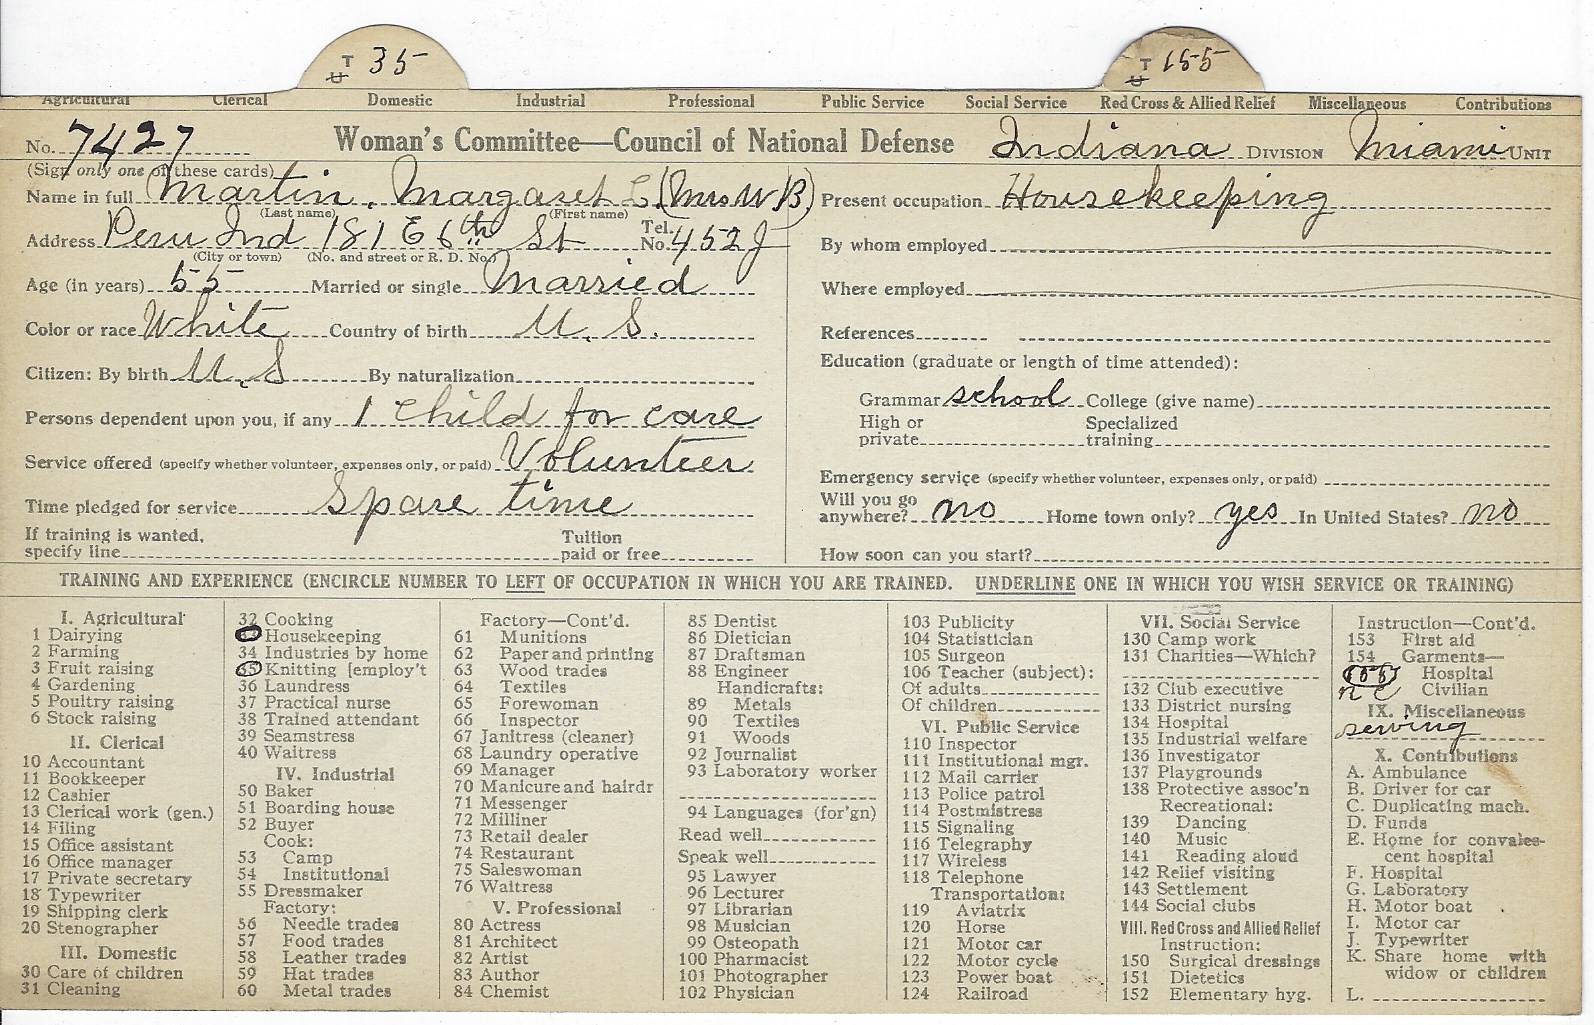 T U 35
T U 155
Agricultural Clerical Domestic Industrial Professional Public Service Social Service Red Cross & Allied Relief Miscellaneous Contributions
No. 7427 Woman's Committee—Council of National Defense Indiana DIVISION Miami UNIT
(Sign only one of these cards)
Name in full Martin, Margaret L. (Mrs W B) Present occupation Housekeeping
(Last name) (First name)
Address Peru Ind 181 E 6th St Tel. No. 452 J By whom employed
(City or town) (No. and street or R. D. No.)
Age (in years) 55 Married or single Married Where employed
Color or race White Country of birth U. S. References
Education (graduate or length of time attended):
Citizen: By birth U. S By naturalization
Grammar school College (give name)
Persons dependent upon you, if any 1 child for care High or private Specialized training
Service offered (specify whether volunteer, expenses only, or paid) Volunteer Emergency service (specify whether volunteer, expenses only, or paid)
Time pledged for service Spare time Will you go anywhere? no Home town only? yes In United States? no
If training is wanted, specify line Tuition paid or free How soon can you start?
TRAINING AND EXPERIENCE (ENCIRCLE NUMBER TO LEFT OF OCCUPATION IN WHICH YOU ARE TRAINED. UNDERLINE ONE IN WHICH YOU WISH SERVICE OR TRAINING)
I. Agricultural
1 Dairying
2 Farming
3 Fruit raising
4 Gardening
5 Poultry raising
6 Stock raising
II. Clerical
10 Accountant
11 Bookkeeper
12 Cashier
13 Clerical work (gen.)
14 Filing
15 Office assistant
16 Office manager
17 Private secretary
18 Typewriter
19 Shipping clerk
20 Stenographer
III. Domestic
30 Care of children
31 Cleaning
32 Cooking
33 Housekeeping
34 Industries by home
35 Knitting [employ't
36 Laundress
37 Practical nurse
38 Trained attendant
39 Seamstress
40 Waitress
IV. Industrial
50 Baker
51 Boarding house
52 Buyer
Cook:
53 Camp
54 Institutional
55 Dressmaker
Factory:
56 Needle trades
57 Food trades
58 Leather trades
59 Hat trades
60 Metal trades
Factory—Cont'd.
61 Munitions
62 Paper and printing
63 Wood trades
64 Textiles
65 Forewoman
66 Inspector
67 Janitress (cleaner)
68 Laundry operative
69 Manager
70 Manicure and hairdr
71 Messenger
72 Milliner
73 Retail dealer
74 Restaurant
75 Saleswoman
76 Waitress
V. Professional
80 Actress
81 Architect
82 Artist
83 Author
84 Chemist
85 Dentist
86 Dietician
87 Draftsman
88 Engineer
Handicrafts:
89 Metals
90 Textiles
91 Woods
92 Journalist
93 Laboratory worker
94 Languages (for'gn)
Read well
Speak well
95 Lawyer
96 Lecturer
97 Librarian
98 Musician
99 Osteopath
100 Pharmacist
101 Photographer
102 Physician
103 Publicity
104 Statistician
105 Surgeon
106 Teacher (subject):
Of adults
Of children
VI. Public Service
110 Inspector
111 Institutional mgr.
112 Mail carrier
113 Police patrol
114 Postmistress
115 Signaling
116 Telegraphy
117 Wireless
118 Telephone
Transportation:
119 Aviatrix
120 Horse
121 Motor car
122 Motor cycle
123 Power boat
124 Railroad
VII. Social Service
130 Camp work
131 Charities—Which?
132 Club executive
133 District nursing
134 Hospital
135 Industrial welfare
136 Investigator
137 Playgrounds
138 Protective assoc'n
Recreational:
139 Dancing
140 Music
141 Reading aloud
142 Relief visiting
143 Settlement
144 Social clubs
VIII. Red Cross and Allied Relief
Instruction:
150 Surgical dressings
151 Dietetics
152 Elementary hyg.
Instruction—Cont'd.
153 First aid
154 Garments—
155 Hospital
Civilian
IX. Miscellaneous
sewing
X. Contributions
A. Ambulance
B. Driver for car
C. Duplicating mach.
D. Funds
E. Home for convalescent hospital
F. Hospital
G. Laboratory
H. Motor boat
I. Motor car
J. Typewriter
K. Share home with widow or children
L.